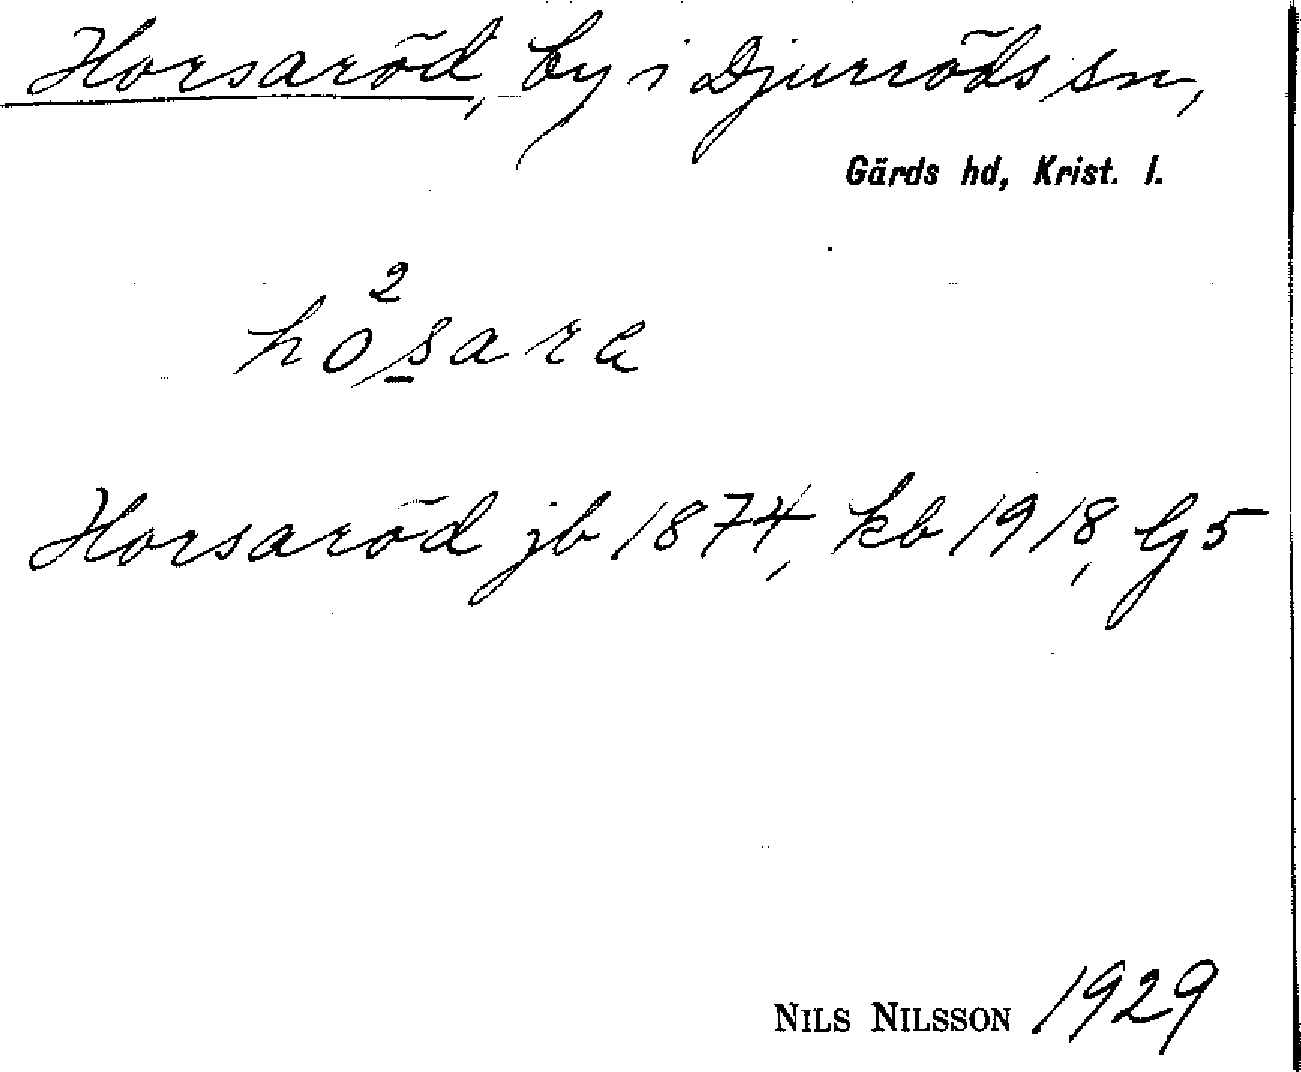 Horsaröd, by i Djurröds sn,
Gärds hd, Krist. l.
2
hosara
Horsaröd jb 1874, kb 1918, G5
NILS NILSSON 1929